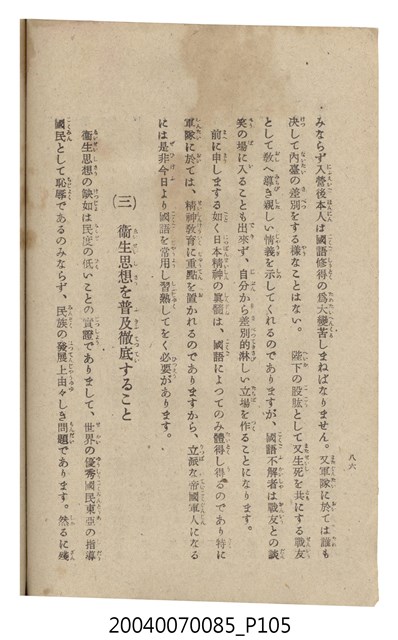 みならず入營後本人は國語修得の爲大變苦しまねばなりません。又軍隊に於ては誰も
決して內臺の差別をする樣なことはない。　陛下の股肱として又生死を共にする戰友
として敎へ導き親しい情義を示してくれるのでありますが、國語不解者は戰友との談
笑の場に入ることも出來ず、自分から差別的淋しい立場を作ることになります。
前に申しまする如く日本精神の眞髓は、國語によつてのみ體得し得るのであり特に
軍隊に於ては、精神敎育に重點を置かれるのでありますから、立派な帝國軍人になる
には是非今日より國語を常用し習熟してをく必要があります。
(三)　衞生思想を普及徹底すること
衞生思想の缺如は民度の低いことの實證でありまして、世界の優秀國民東亞の指導
國民として恥辱であるのみならず、民族の發展上由々しき問題であります。然るに殘
八六
20040070085_P105